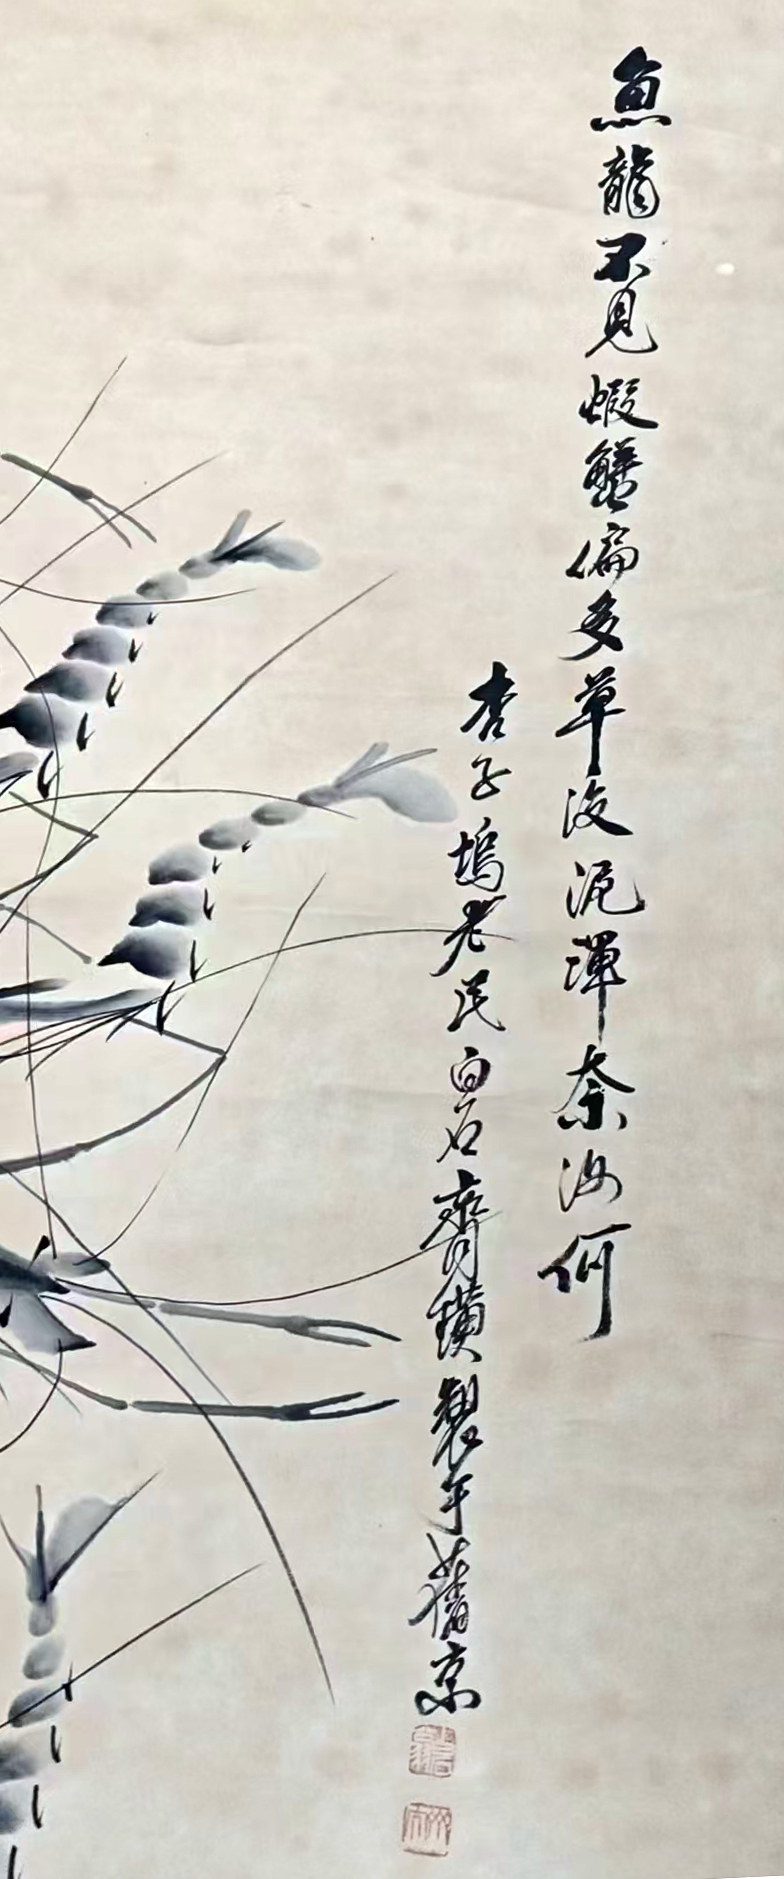 魚龍不見蝦蟹偏多草沒泥渾奈汝何
杏子塢老民白石齊璜製于舊京